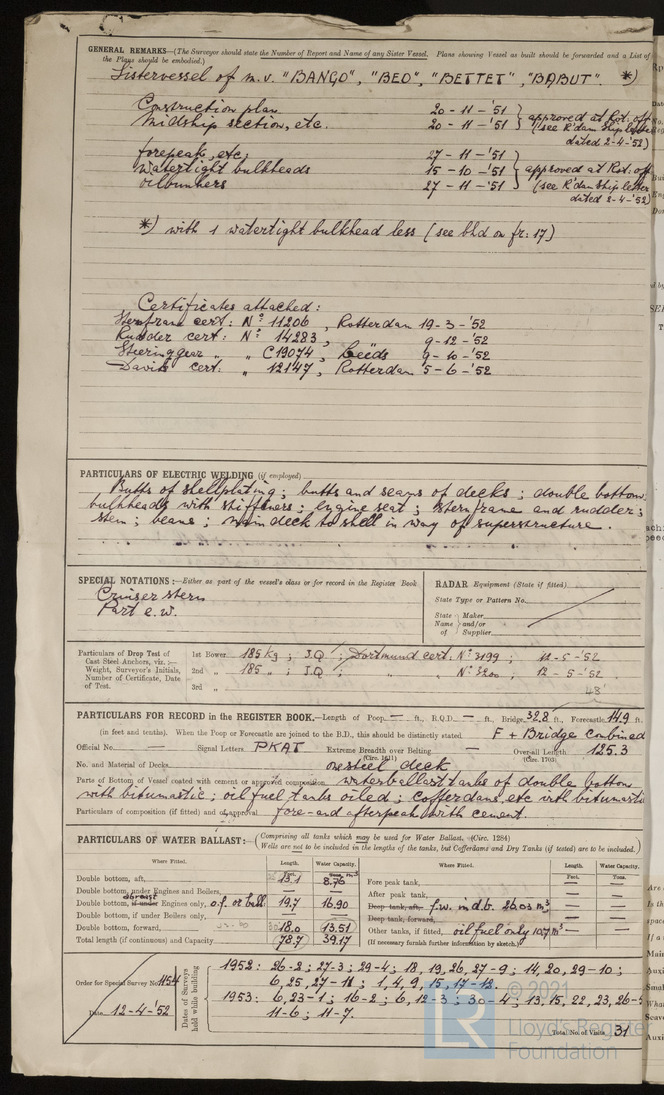 GENERAL REMARKS—(The Surveyor should state the Number of Report and Name of any Sister Vessel. Plans showing Vessel as built should be forwarded and a List of
the Plans should be embodied.)
Sistervessel of m.v. "BANGO", "BEO", "BETTET", "BABUT". *)
Construction plan 20-11-'51 } approved at Rot. off
midship section, etc. 20-11-'51 (see R'dam ship letter
dated 2-4-'52)
forepeak, etc. 27-11-'51 }
watertight bulkheads 15-10-'51 approved at Rot. off
oilbunkers 27-11-'51 (see R'dam ship letter
dated 2-4-'52)
*) with 1 watertight bulkhead less (see bhd on fr: 17)
Certificates attached:
Sternframe cert: No: 11206, Rotterdam 19-3-'52
Rudder cert: No: 14283, 9-12-'52
Steeringgear " " C19074, Leeds 9-10-'52
Davits cert: " 12147, Rotterdam 5-6-'52
PARTICULARS OF ELECTRIC WELDING (if employed)
Butts of shellplating; butts and seams of decks; double bottom,
bulkheads with stiffeners; engine seat; sternframe and rudder;
stem; beams; main deck to shell in way of superstructure.
SPECIAL NOTATIONS:—Either as part of the vessel's class or for record in the Register Book
Cruiser stern
Part e.w.
RADAR Equipment (State if fitted)
State Type or Pattern No.
State Name of } Maker and/or Supplier
Particulars of Drop Test of Cast Steel Anchors, viz.:— Weight, Surveyor's Initials, Number of Certificate, Date of Test.
1st Bower 185 kg; J.Q.; Dortmund cert: No: 3199; 12-5-'52
2nd " 185 "; J.Q.; " " No: 3200, 12-5-'52
3rd "
PARTICULARS FOR RECORD in the REGISTER BOOK.—Length of Poop — ft., R.Q.D. — ft., Bridge 32.8 ft., Forecastle 14.9 ft.
(in feet and tenths). When the Poop or Forecastle are joined to the B.D., this should be distinctly stated F + Bridge combined
Official No. — Signal Letters PKAT Extreme Breadth over Belting — (Circ. 1611) Over-all Length 125.3 (Circ. 1703)
No. and Material of Decks one steel deck
Parts of Bottom of Vessel coated with cement or approved composition waterballast tanks of double bottom
with bitumastic; oil fuel tanks oiled; cofferdams, etc with bitumastic
Particulars of composition (if fitted) and of approval fore- and afterpeak with cement.
PARTICULARS OF WATER BALLAST:— (Comprising all tanks which may be used for Water Ballast, (Circ. 1284)
Wells are not to be included in the lengths of the tanks, but Cofferdams and Dry Tanks (if tested) are to be included.)
Where Fitted. Length. Water Capacity. Where Fitted. Length. Water Capacity.
Feet. Feet. Tons.
Double bottom, aft, 13.1 8.76 Fore peak tank, — —
Double bottom, under Engines and Boilers, — — After peak tank, — —
Double bottom, if under abreast Engines only, o.f. or ball 19.7 16.90 Deep tank, aft, f.w. in d.b. 26.03 m³
Double bottom, if under Boilers only, — — Deep tank, forward,
Double bottom, forward, 18.0 13.51 Other tanks, if fitted, oil fuel only 10.7 m³
Total length (if continuous) and Capacity 78.7 39.17 (If necessary furnish further information by sketch.)
Order for Special Survey No. 1154
Date 12-4-'52
Dates of Surveys held while building
1952: 26-2; 27-3; 29-4; 18, 19, 26, 27-9; 14, 20, 29-10;
6, 25, 27-11; 1, 4, 9, 15, 17-12.
1953: 6, 23-1; 16-2; 6, 12-3; 30-4; 13, 15, 22, 23, 26-5
11-6; 11-7.
Total No. of Visits 31
© 2021
LR
Lloyd's Register
Foundation